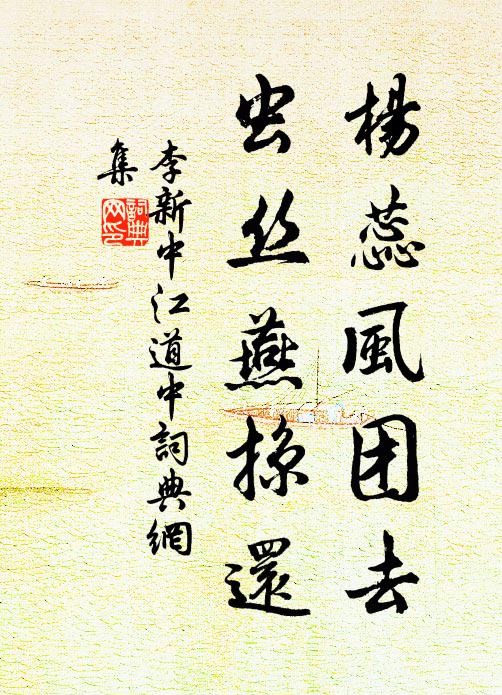 楊蕊風团去
虫丝燕掠還
李新中江道中詞典網
集
詞典
网印